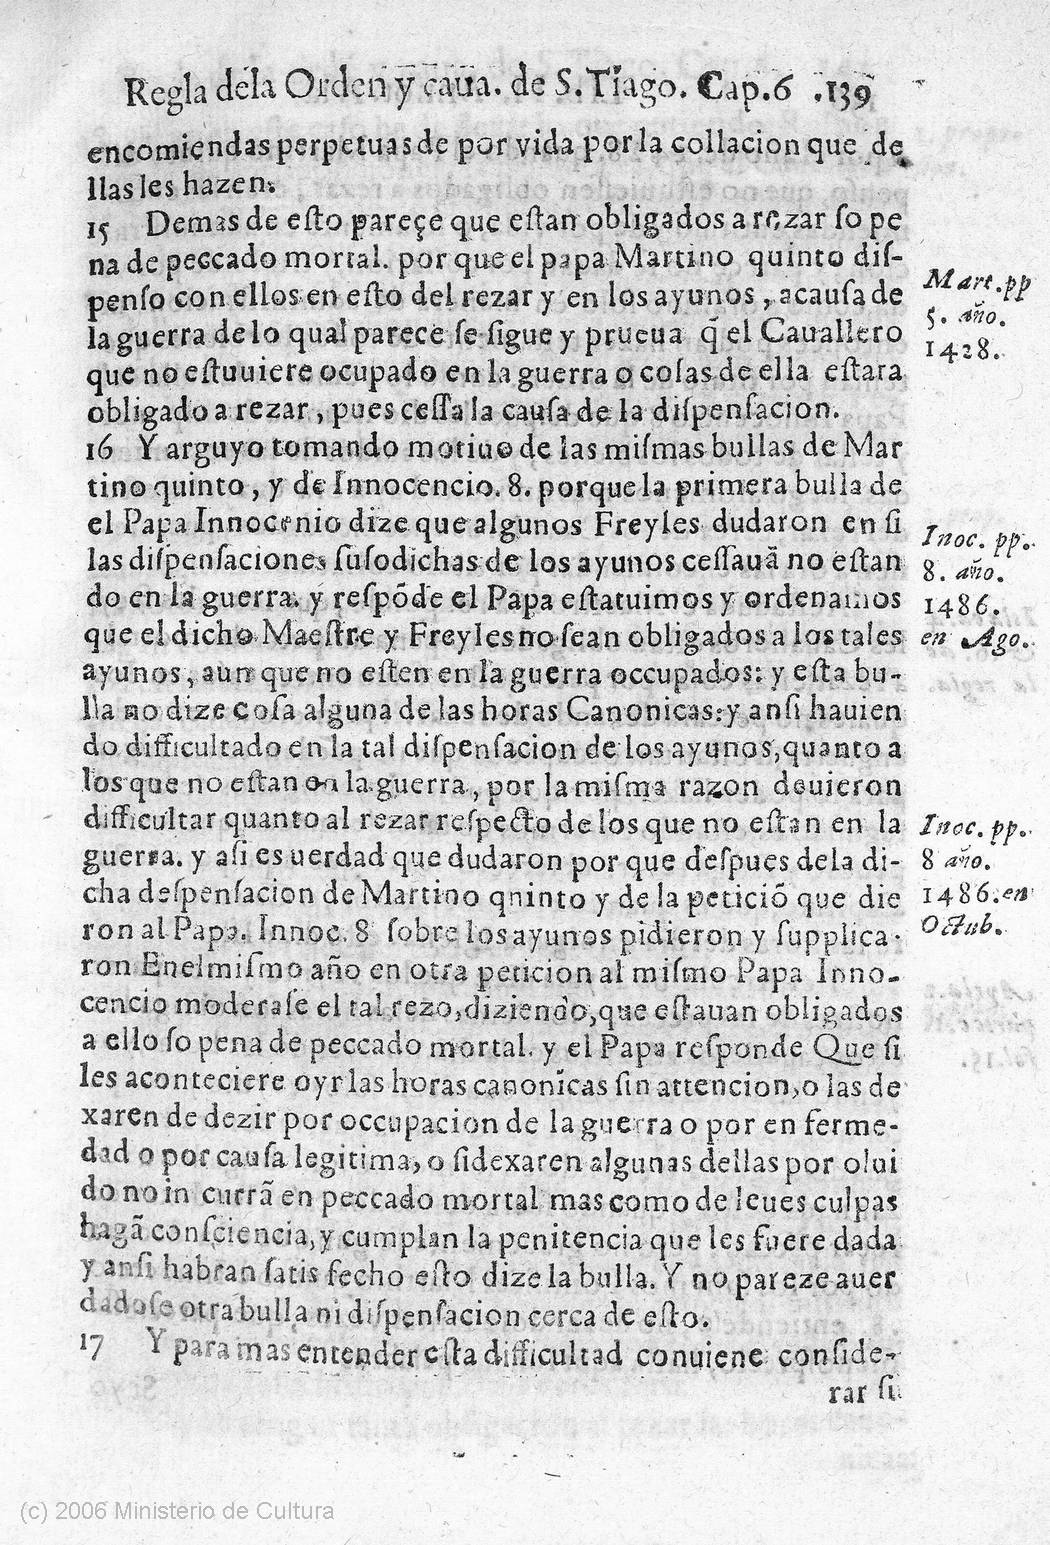 Regla dela Orden y caua. de S. Tiago. Cap.6 .139
encomiendas perpetuas de por vida por la collacion que de
llas les hazen.
15 Demas de eſto pareçe que eſtan obligados a rezar ſo pe
na de peccado mortal. por que el papa Martino quinto diſ-
penſo con ellos en eſto del rezar y en los ayunos, acauſa de
la guerra de lo qual parece ſe ſigue y prueua q̃ el Cauallero
que no eſtuuiere ocupado en la guerra o coſas de ella eſtara
obligado a rezar, pues ceſſa la cauſa de la diſpenſacion.
Mart. pp
5. año.
1428.
16 Y arguyo tomando motiuo de las miſmas bullas de Mar
tino quinto, y de Innocencio. 8. porque la primera bulla de
el Papa Innocenio dize que algunos Freyles dudaron en ſi
las diſpenſaciones ſuſodichas de los ayunos ceſſauã no eſtan
do en la guerra. y reſpõde el Papa eſtatuimos y ordenamos
que el dicho Maeſtre y Freyles no ſean obligados a los tales
ayunos, aun que no eſten en la guerra occupados: y eſta bu-
lla no dize coſa alguna de las horas Canonicas: y anſi hauien
do difficultado en la tal diſpenſacion de los ayunos, quanto a
los que no eſtan en la guerra, por la miſma razon deuieron
difficultar quanto al rezar reſpecto de los que no eſtan en la
guerra. y aſi es uerdad que dudaron por que deſpues dela di-
cha deſpenſacion de Martino qninto y de la peticiõ que die
ron al Papa. Innoc. 8 ſobre los ayunos pidieron y ſupplica-
ron Enel miſmo año en otra peticion al miſmo Papa Inno-
cencio moderaſe el tal rezo, diziendo, que eſtauan obligados
a ello ſo pena de peccado mortal. y el Papa reſponde Que ſi
les aconteciere oyr las horas canonicas ſin attencion, o las de
xaren de dezir por occupacion de la guerra o por en ferme-
dad o por cauſa legitima, o ſi dexaren algunas dellas por olui
do no in currã en peccado mortal mas como de leues culpas
hagã conſciencia, y cumplan la penitencia que les fuere dada
y anſi habran ſatis fecho eſto dize la bulla. Y no pareze auer
dadoſe otra bulla ni diſpenſacion cerca de eſto.
Inoc. pp.
8. año.
1486.
en Ago.
Inoc. pp.
8 año.
1486. en
Octub.
17 Y para mas entender eſta difficultad conuiene conſide-
rar ſi
(c) 2006 Ministerio de Cultura